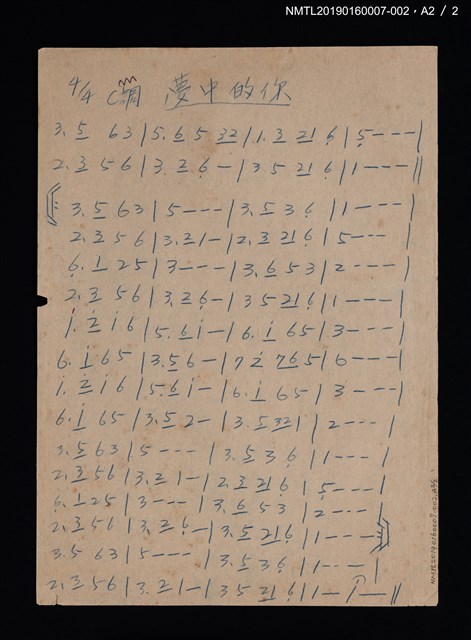 NMTL20190160007-002，A2 / 2
4/4 C調 夢中的你
3. 5 63 | 5. 6 5 32 | 1. 3 21 6 | 5 - - - |
2. 3 5 6 | 3. 2 6 - | 3. 5 21 6 | 1 - - - ||
3. 5 63 | 5 - - - | 3. 5 3 6 | 1 - - - |
2. 3 5 6 | 3. 21 - | 2. 3 21 6 | 5 - - - |
6. 1 25 | 3 - - - | 3. 6 5 3 | 2 - - - |
2. 3 56 | 3. 26 - | 3 5 21 6 | 1 - - - |
1. 2 1 6 | 5. 6 1 - | 6. 1 65 | 3 - - - |
6. 1 65 | 3. 5 6 - | 7 2 76 5 | 6 - - - |
1. 2 1 6 | 5. 6 1 - | 6. 1 65 | 3 - - - |
6. 1 65 | 3. 5 2 - | 3. 5 32 | 2 - - - |
3. 5 63 | 5 - - - | 3. 5 3 6 | 1 - - - |
2. 3 56 | 3. 2 1 - | 2. 3 21 6 | 5 - - - |
6. 1 25 | 3 - - - | 3. 6 53 | 2 - - - |
2. 3 56 | 3. 2 6 - | 3. 5 21 6 | 1 - - - |
3. 5 63 | 5 - - - | 3. 5 3 6 | 1 - - - |
2. 3 56 | 3. 21 - | 3 5 21 6 | 1 - 1 - ||